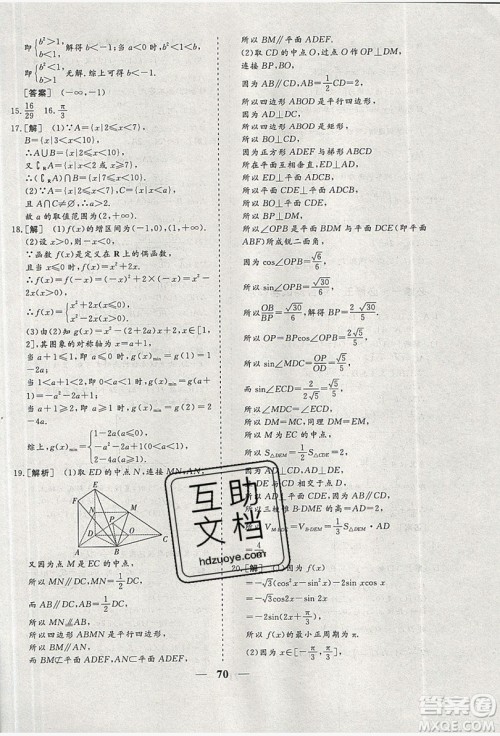 即{b²>1, b<1, 解得 b<-1;当 a<0 时,则{a+b<a, b<ab,
即{b²<1, b>1, 无解.综上可得 b<-1.
[答案] (-∞,-1)
15. 16/29 16. π/3
17.[解] (1)∵A={x|2≤x<7},
B={x|3<x<10},
∴A∪B={x|2≤x<10}.
∁_R A={x|x<2 或 x≥7},
∴(∁_R A)∩B={x|7≤x<10}.
(2)∵A={x|2≤x<7},C={x|x<a},
且 A∩C≠∅,∴a>2.
故 a 的取值范围为(2,+∞).
18.[解] (1)f(x)的增区间为(-1,0),(1,+∞).
(2)设 x>0,则-x<0,
∵函数 f(x)是定义在 R 上的偶函数,
且当 x≤0 时,f(x)=x²+2x,
∴f(x)=f(-x)=(-x)²+2(-x)=x²-2x(x>0),
∴f(x)={x²+2x(x≤0), x²-2x(x>0).
(3)由(2)知 g(x)=x²-2x-2ax+2,x∈[1,
2],其图象的对称轴为 x=a+1,
当 a+1≤1,即 a≤0 时,g(x)min=g(1)=
1-2a;
当 1<a+1<2,即 0<a<1 时,g(x)min=g(a
+1)=-a²-2a+1;
当 a+1≥2,即 a≥1 时,g(x)min=g(2)=2
-4a.
综上,g(x)min={1-2a(a≤0), -a²-2a+1(0<a<1), 2-4a(a≥1).
19.[解析] (1)取 ED 的中点 N,连接 MN,AN,
E
F
N
M
P
D
O
A
B
C
又因为点 M 是 EC 的中点,
所以 MN∥DC,MN=1/2 DC,
而 AB∥DC,AB=1/2 DC,
所以 MN∥AB,MN=AB,
所以四边形 ABMN 是平行四边形,
所以 BM∥AN,
而 BM⊄平面 ADEF,AN⊂平面 ADEF,
所以 BM∥平面 ADEF.
(2)取 CD 的中点 O,过点 O 作 OP⊥DM,
连接 BP,BO,
因为 AB∥CD,AB=1/2 CD=2,
所以四边形 ABOD 是平行四边形,
因为正方形 ADEF 与梯形 ABCD 所在
平面互相垂直,ED⊥AD,
所以 ED⊥平面 ADCB,
所以平面 CDE⊥平面 ADCB,
所以 BO⊥平面 CDE,
所以 BP⊥DM,
所以∠OPB 是平面 BDM 与平面 DCE(即平面
ABF)所成锐二面角,
因为 cos∠OPB=√6/6,
所以 sin∠OPB=√30/6,
所以 OB/BP=√30/6,解得 BP=2√30/5.
所以 OP=BPcos∠OPB=2√5/5.
所以 sin∠MDC=OP/OD=√5/5.
而 sin∠ECD=2/√4²+2²=√5/5.
所以∠MDC=∠MCE,
所以 DM=MC,同理 DM=EM,
所以 M 为 EC 的中点,
所以 S△DEM=1/2 S△CDE=2,
所以三棱锥 B-DME 的高=
所以 V
=V
=1/3 S△DEM · AD
=4/3.
20.[解] (1)因为 f(x)
=-√3(cos²x-sin²x)-2sinxcosx
=-√3cos2x-sin2x
=-2sin(2x+π/3),
所以 f(x)的最小正周期为 π.
(2)因为 x∈[-π/3,
70
互助文档
hdzuoye.com
答案圈
MXQE.COM